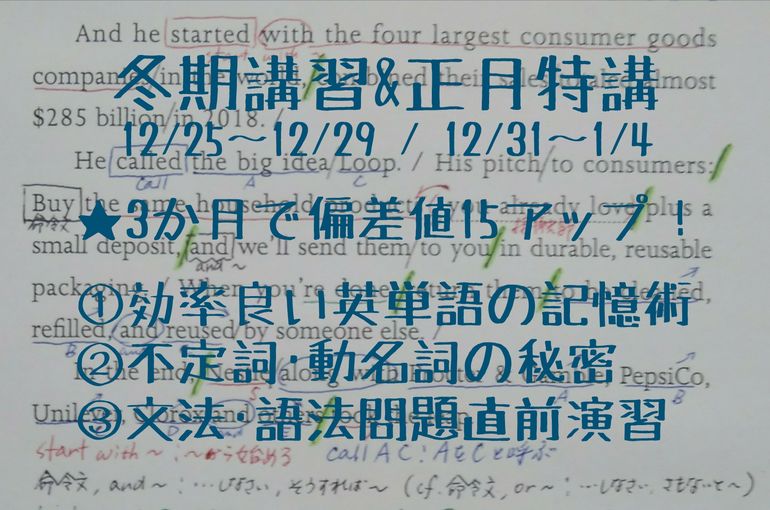 And he started with the four largest consumer goods
companies/in the world,
冬期講習&正月特講
almost
$285 billion/in 2018. /
12/25～12/29 / 12/31～1/4
He called the big idea/Loop. / His pitch/to consumers:/
call A C
Buy the same household
plus a
命令文
★3か月で偏差値15アップ!
small deposit,/and we'll send them/to you/in durable, reusable
and ~
packaging. / When you're done,
①効率良い英単語の記憶術
refilled,/and reused/by someone else. /
②不定詞・動名詞の秘密
In the end,
along with
PepsiCo,
Unilever,
③文法・語法問題直前演習
start with ～:～から始める call A C:AをCと呼ぶ
命令文, and ～:…しなさい, そうすれば～ (cf. 命令文, or ～:…しなさい, さもないと～)